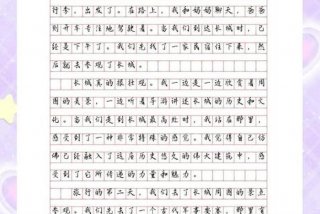 行李，出发了。在路上，我和奶奶聊天，爸爸
则开车专注地驾驶着。当我们到达长城时，已
经是下午了。我们先找了一家民宿住下来，然
后就去参观了长城。
长城真的很壮观。我一边是一边欣赏着周
围的美景，一边听着导游讲述长城的历史和文
化。当我们走到长城的最高点时，我站在那里，
感受到了一种非常特殊的感觉。我觉得自己仿
佛已经融入了这座历史悠久的伟大建筑中，感
受到了它所传递的力量和魅力。
旅行的第二天，我们去了长城周围的景点
参观。我们先去了一个古代军事要塞，那里有